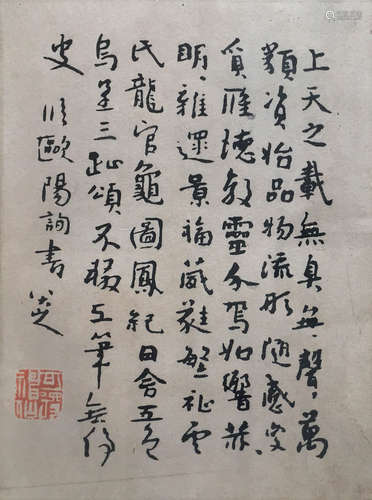 上天之載無臭無聲萬
類資始品物流形隨感变
質應德效靈介焉如響赫、
明、雜遝景福葳蕤繁祉雲
氏龍官龜圖鳳紀日含五色
烏呈三趾頌不輟工筆無停
史 临歐陽詢書 八大